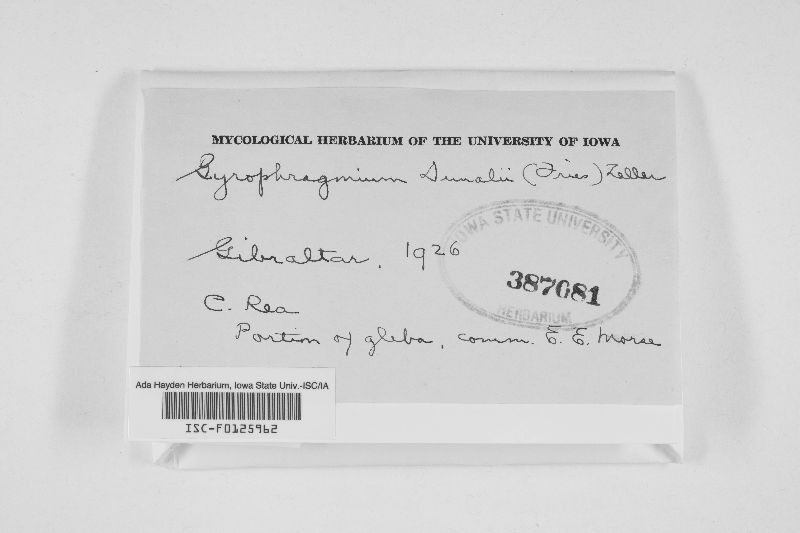 MYCOLOGICAL HERBARIUM OF THE UNIVERSITY OF IOWA
Gyrophragmium Dunalii (Fries) Zeller
IOWA STATE UNIVERSITY
Gibraltar, 1926
387681
C. Rea
HERBARIUM
Portion of gleba, comm. E. E. Morse
Ada Hayden Herbarium, Iowa State Univ.-ISC/IA
ISC-F0125962